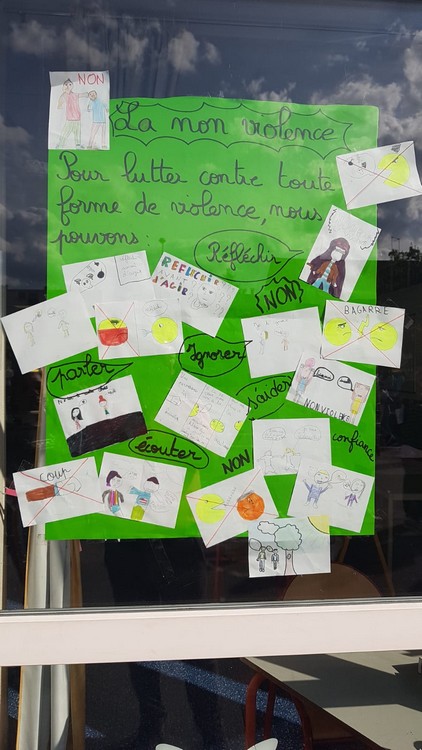 NON
La non violence
Pour lutter contre toute
forme de violence, nous
pouvons :
Réfléchir
REFLECHIR
AVANT
D'AGIR
NON
BAGARRE
Ignorer
parler
s'aider
NON VIOLENCE
écouter
confiance
NON
COUP